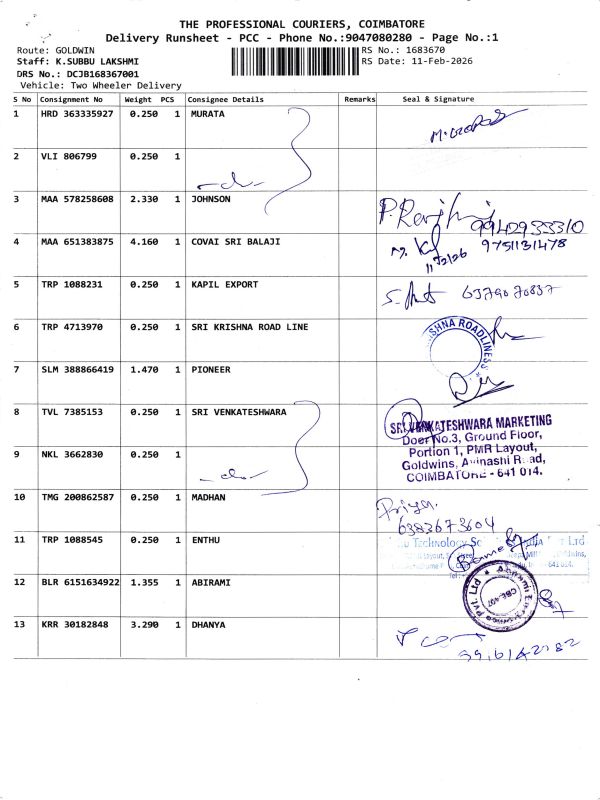 THE PROFESSIONAL COURIERS, COIMBATORE
Delivery Runsheet - PCC - Phone No.:9047080280 - Page No.:1
Route: GOLDWIN RS No.: 1683670
Staff: K.SUBBU LAKSHMI RS Date: 11-Feb-2026
DRS No.: DCJB168367001
Vehicle: Two Wheeler Delivery
S No Consignment No Weight PCS Consignee Details Remarks Seal & Signature
1 HRD 363335927 0.250 1 MURATA
2 VLI 806799 0.250 1
-do-
3 MAA 578258608 2.330 1 JOHNSON
9942933310
4 MAA 651383875 4.160 1 COVAI SRI BALAJI 9751131478
11/2/26
5 TRP 1088231 0.250 1 KAPIL EXPORT 6379070837
6 TRP 4713970 0.250 1 SRI KRISHNA ROAD LINE
SHNA ROADLINESS
7 SLM 388866419 1.470 1 PIONEER
8 TVL 7385153 0.250 1 SRI VENKATESHWARA
SRI VENKATESHWARA MARKETING
Door No.3, Ground Floor,
Portion 1, PMR Layout,
Goldwins, Avinashi Road,
COIMBATORE - 641 014.
9 NKL 3662830 0.250 1
-do-
10 TMG 200862587 0.250 1 MADHAN
Priya.
6383673604
11 TRP 1088545 0.250 1 ENTHU
Technology
Ltd
12 BLR 6151634922 1.355 1 ABIRAMI
Pvt. Ltd
CBE-407
13 KRR 30182848 3.290 1 DHANYA